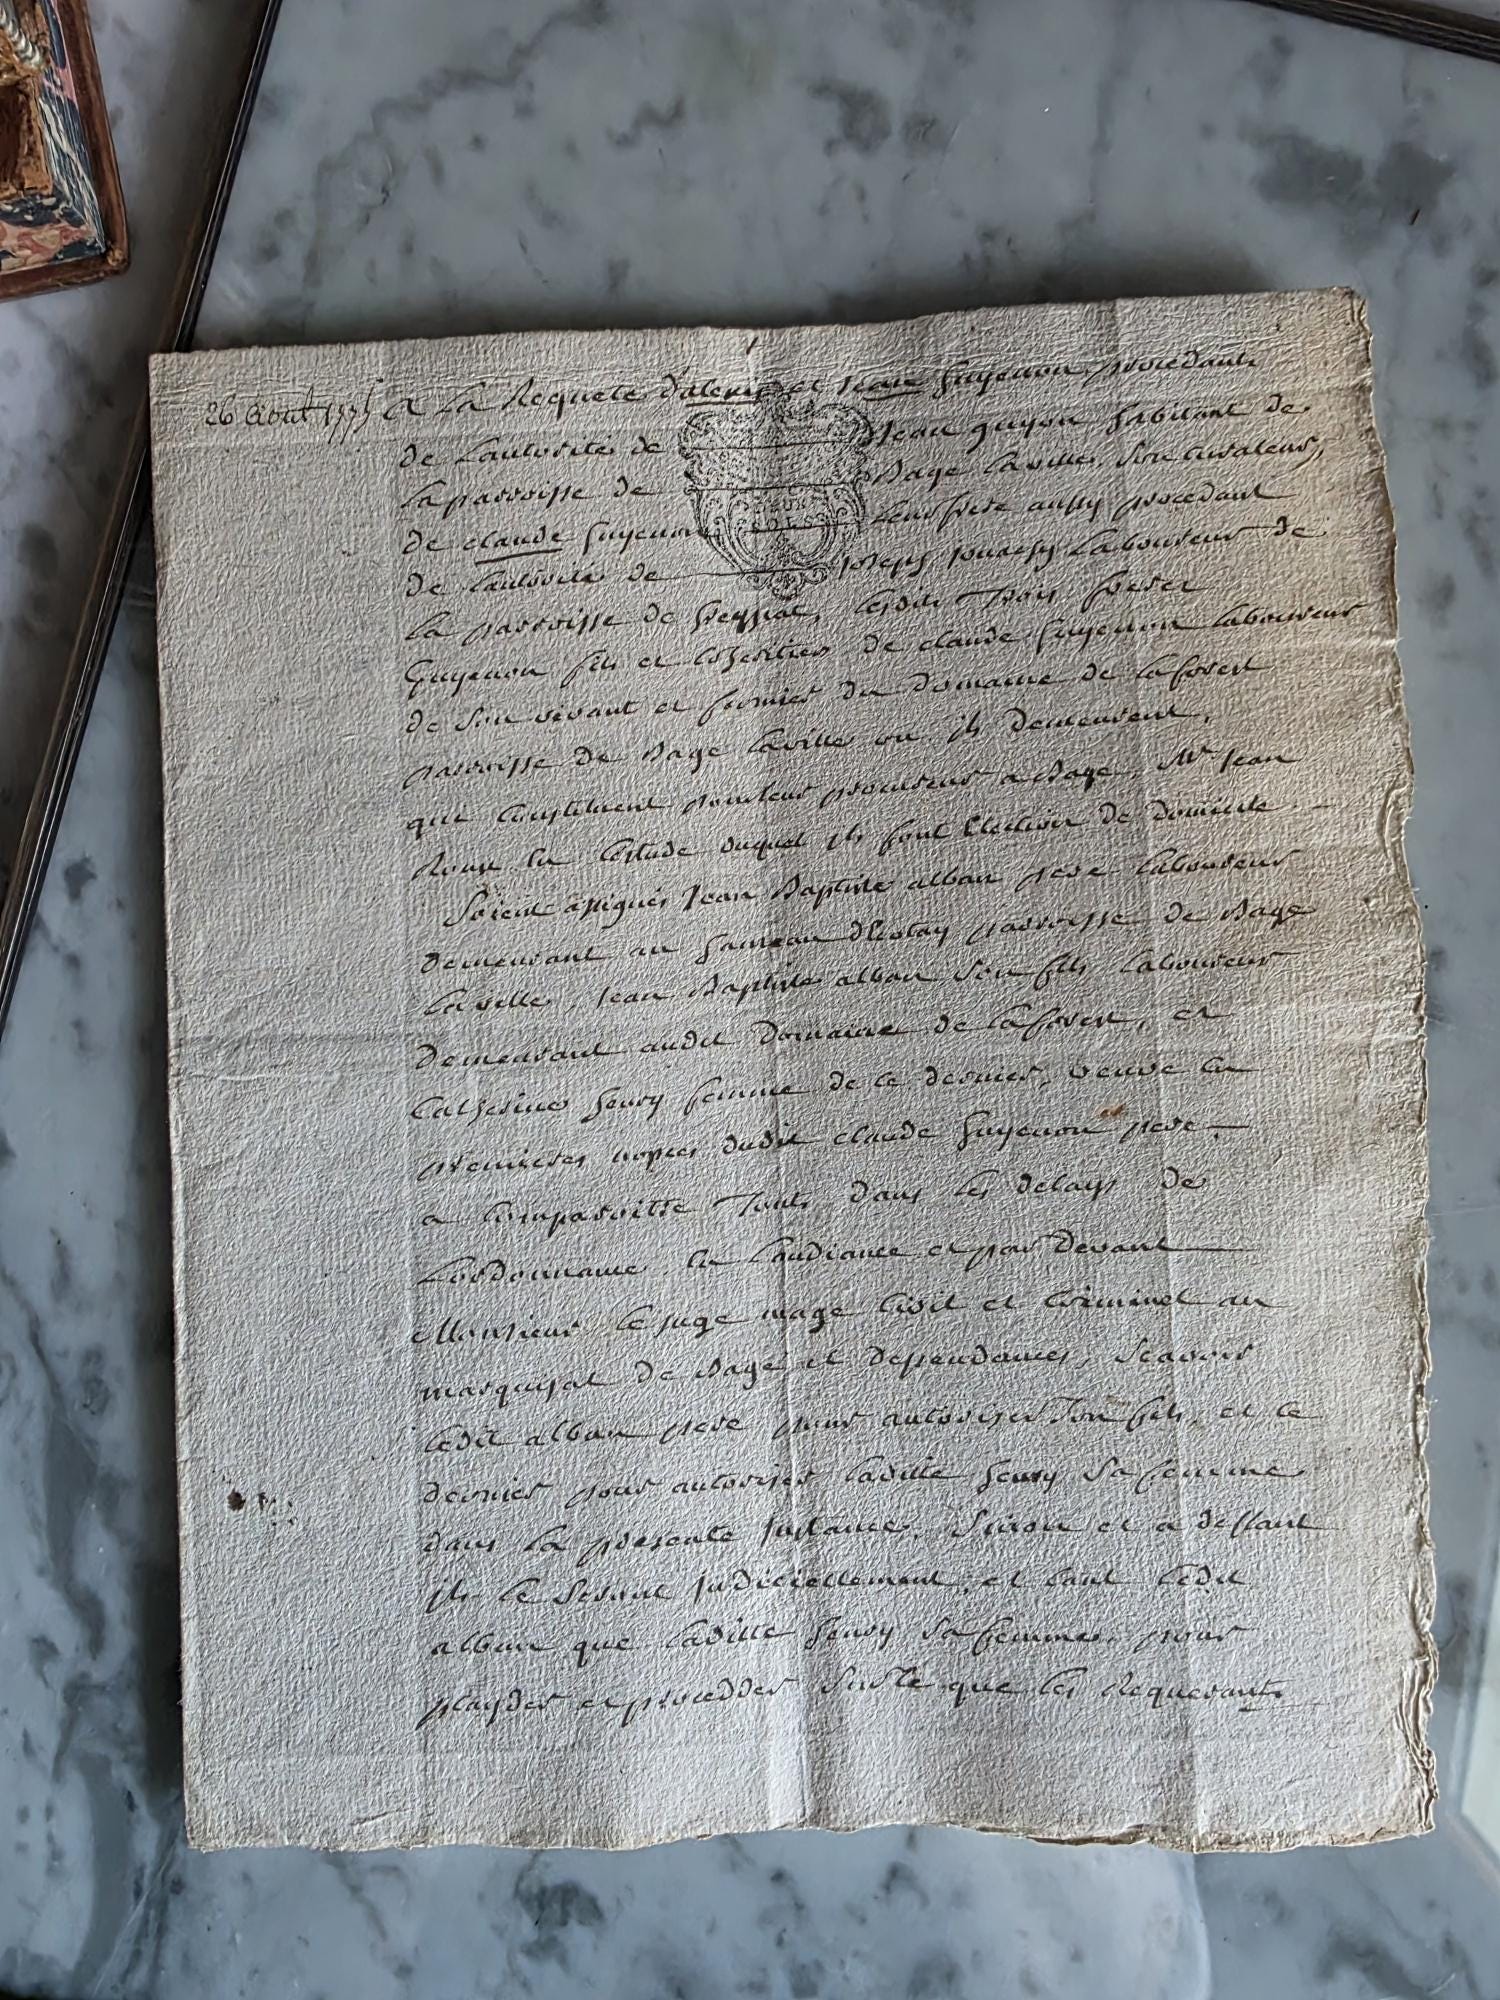 26 Aout 1775 A La Requete d'alexis et Jean Guyenon procedants
de Lautorité de Jean guyon habitant de
La parroisse de Bage Laville, son curateur,
de claude Guyenon Leur frere aussy procedant
de Lautorité de Joseph Laboureur de
La parroisse de lesdits Trois freres
Guyenon fils et cohéritiers de claude Guyenon Laboureur
de son vivant et fermier du Domaine de Laforest
parroisse de Bage Laville ou ils demeurent,
qui constituent pour leur procureur a Bage, Mr Jean
Roux en Lestude duquel ils font Election de domicile
Soient assignés Jean Baptiste alban pere Laboureur
demeurant au hameau parroisse de Bage
Laville, Jean Baptiste alban son fils Laboureur
Demeurant audit Domaine de Laforest, et
Catherine henry femme de ce dernier, veuve en
premieres nopces dudit claude Guyenon pere
a Comparoitre Touts dans les delays de
Lordonnance en Laudiance et par devant
Monsieur Le juge mage Civil et Criminel au
marquisat de Bagé et dependances, scavoir
Ledit alban pere pour autoriser son fils, et ce
dernier pour autoriser Laditte henry sa femme
dans La presente Instance, sinon et a deffaut
ils le seront judiciellement, et tant Ledit
alban que Laditte henry sa femme, pour
playder et procedder sur ce que les Requerants